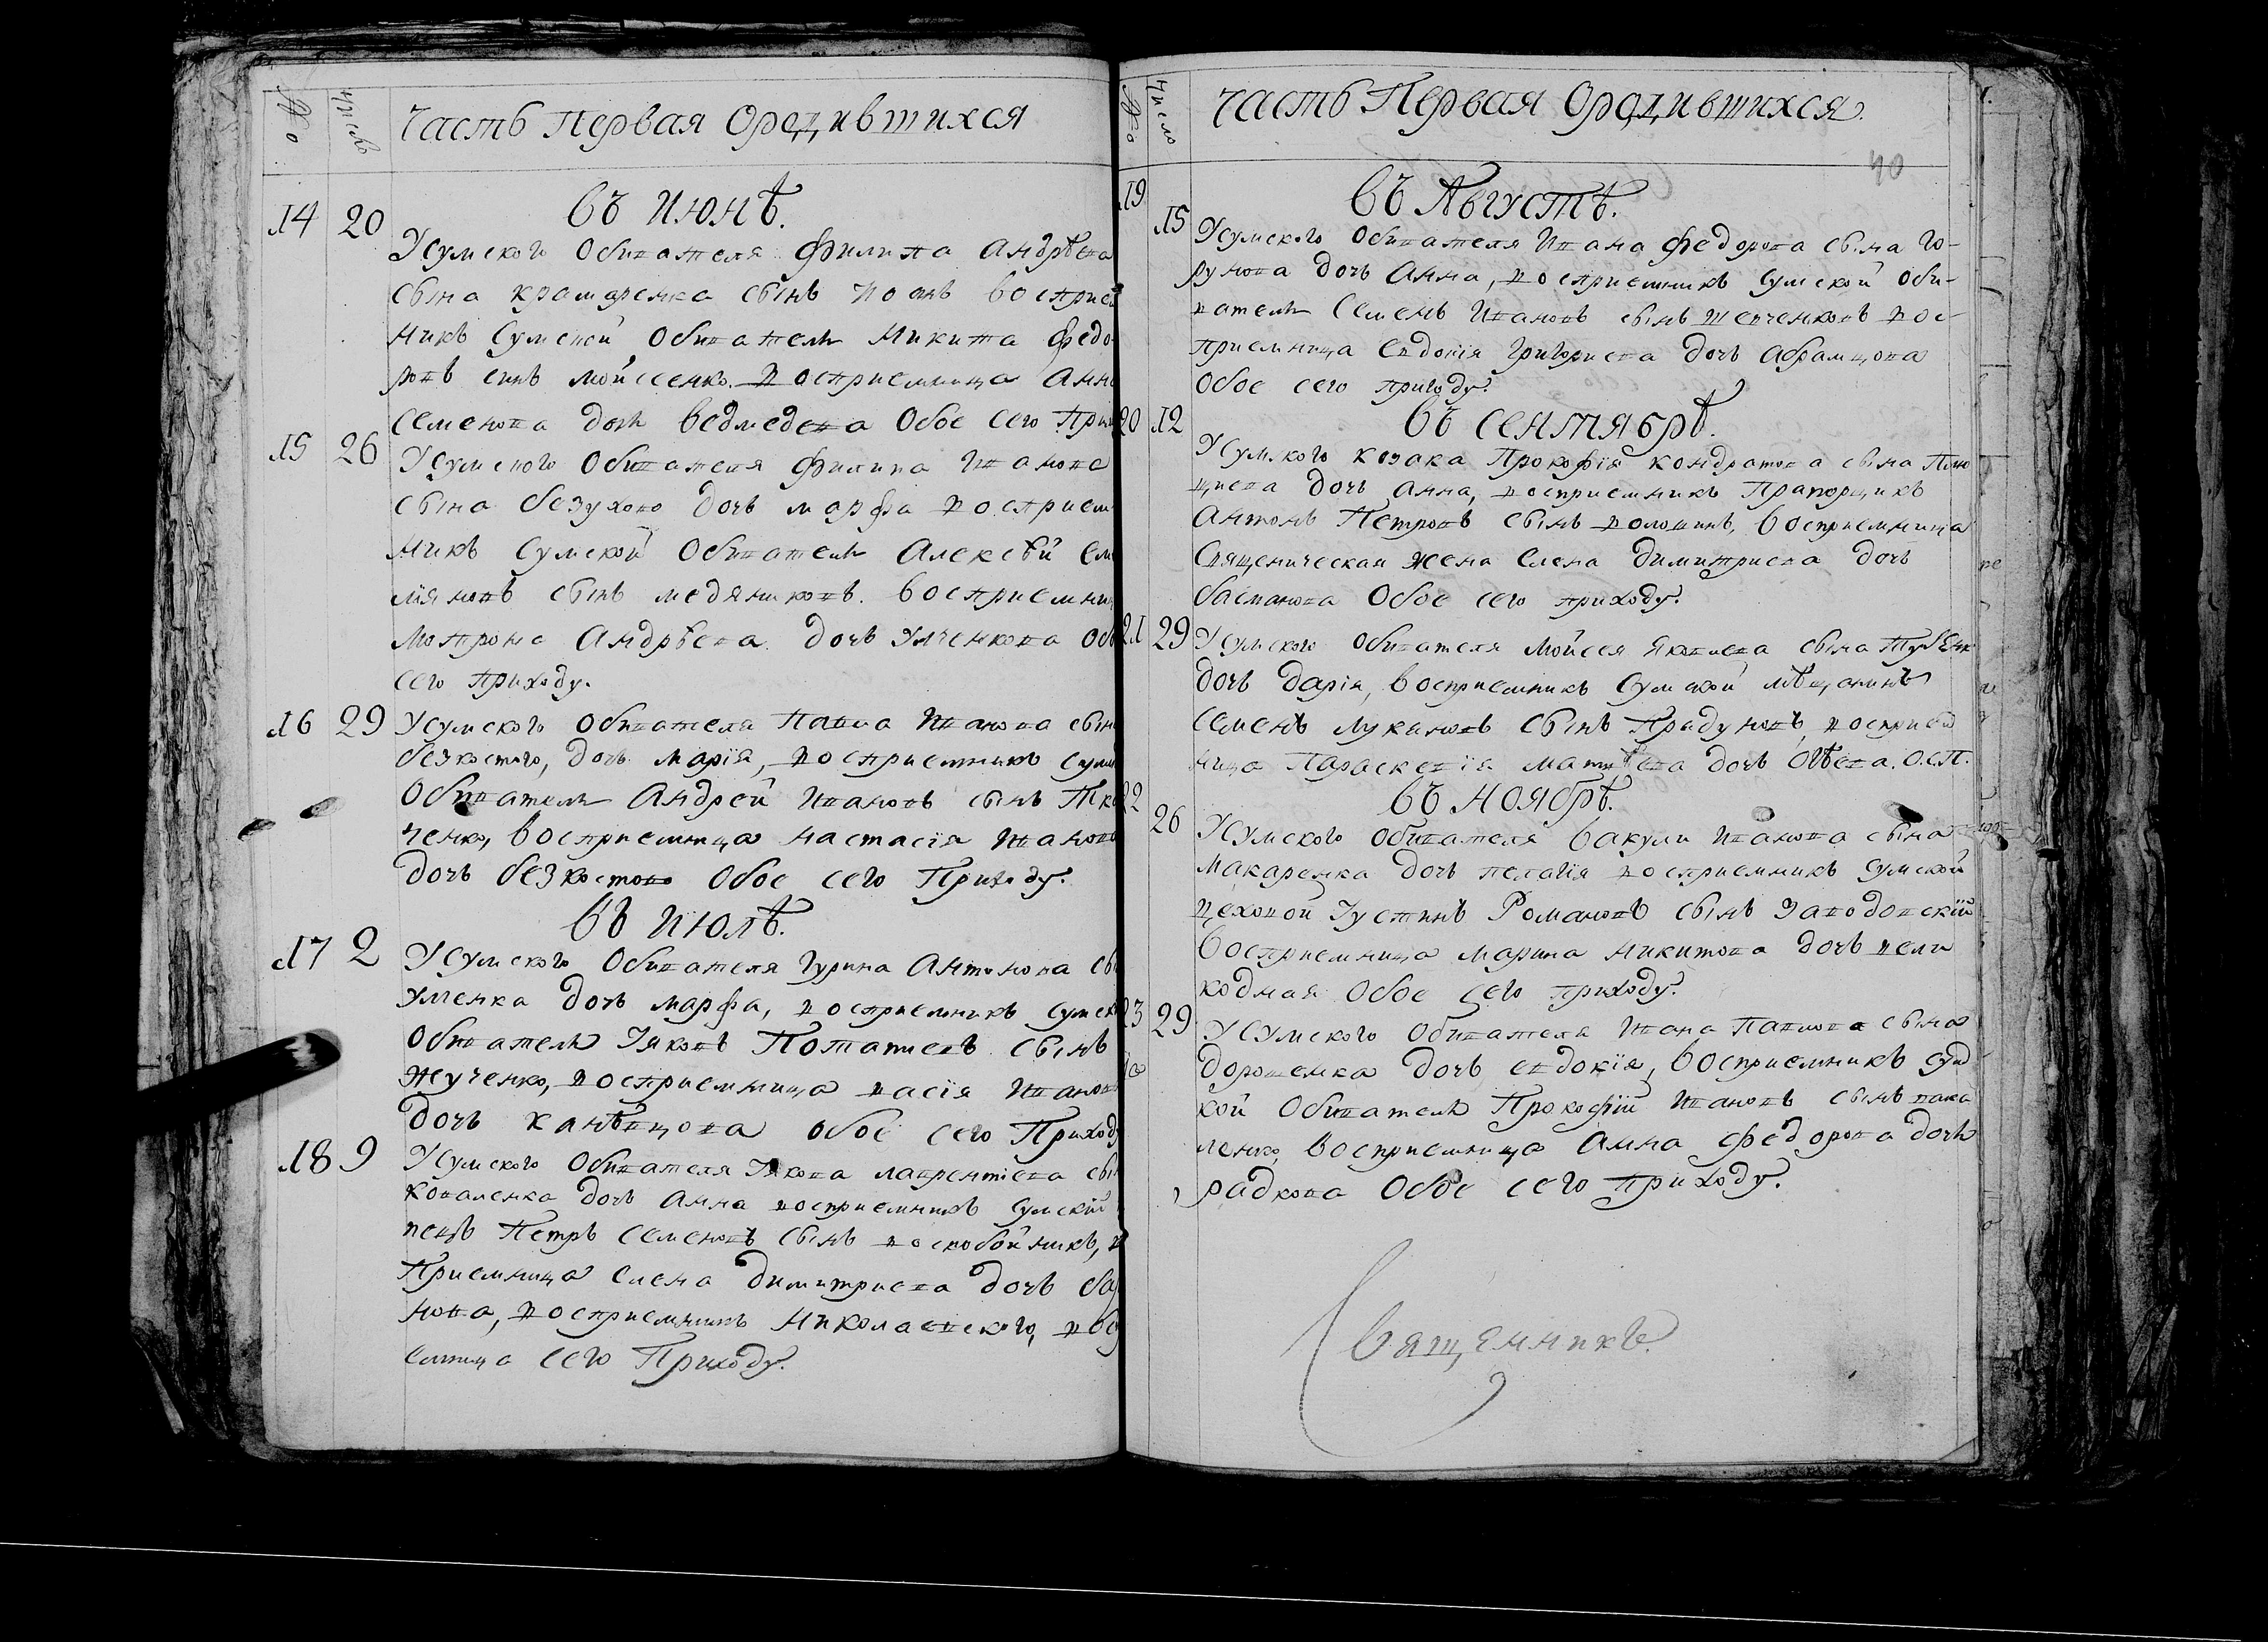 № число Часть Первая Ородившихся
Въ Июнѣ.
14 20 Усумского Обивателя Филипа Андрѣева
сына крамаренка сынъ Иоанъ восприе
никъ Сумской Обиватель Микита Федо
ровъ синъ мойсеенко. восприемница Анн
Семенова дочь ведмедева Обое сего При
15 26 Усумского Обивателя Филипа Иванова
сына безухого дочь марфа восприем
никъ Сумской Обиватель Алексѣй Ем
ліяновъ сынъ медяниковъ. восприемни
мотрона Андрѣева дочь Улченкова Обо
сего приходу.
16 29 Усумского Обивателя Павла Иванова сын
безкостого, дочь Марія, восприемникъ сум
Обиватель Андрей Ивановъ сынъ Тка
ченко, восприемница настасія Иванов
дочь безкостого Обое сего Приходу.
Въ Июлѣ.
17 2 Усумского Обивателя Гурина Антонова сы
улченка дочь марфа, восприемникъ сумск
Обиватель Іяковъ Потапиевъ сынъ
жученко, восприемница васія Иванов
дочь канѣвцова обое сего Приход
18 9 Усумского Обивателя Іякова лаврентіева сы
коваленка дочь Анна восприемникъ Сумскій
пецъ Петръ Семеновъ сынъ воскобойникъ, в
Приемница Елена Димитриева дочь ба
нова, восприемникъ николаевского, вос
емница сего Приходу.
№ число Часть Первая Ородившихся.
40
19 Въ Августѣ.
15 Усумского Обивателя Ивана Федорова сына Го-
рунова дочь Анна, восприемникъ Сумской оби-
ватель Семенъ Ивановъ сынъ шевченковъ вос-
приемница Евдокія Григориева дочь Абрамцова
Обое сего приходу.
20 12 Въ Сентябрѣ.
Усумского козака Прокофія кондратова сына
дочь Анна, восприемникъ Прапорщикъ
Антонъ Петровъ сынъ волошинъ, восприемница
Священическая жена Елена Димитриева дочь
басманова Обое сего приходу.
21 29 Усумского Обивателя Мойсея Яковлева сына
дочь Дарія, восприемникъ Сумской мѣщанинъ
Семенъ Лукановъ сынъ Прадуновъ, восприем
ница Параскевія матвѣева дочь О.с.П.
22 Въ Ноябрѣ.
26 Усумского обивателя вакули Иванова сына
Макаренка дочь пелагія восприемникъ Сумской
цеховой Іустинъ Романовъ сынъ заводовскій
восприемница марина Никитова дочь вели
кодная Обое сего приходу.
23 29 УСумского Обивателя Ивана Павлова сына
дорошенка дочь евдокія, восприемникъ сум
кой Обиватель Прокофій Ивановъ сынъ
ленко, восприемница Анна Федорова дочь
радкова Обое сего приходу.
Священникъ